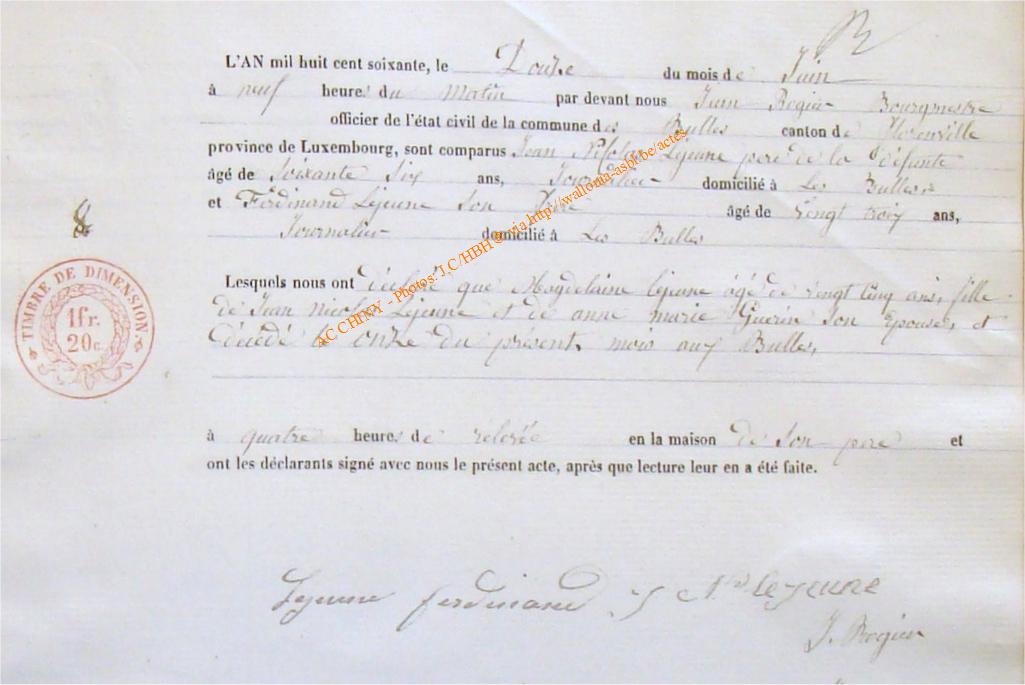 L'AN mil huit cent soixante, le Douze du mois de Juin
à neuf heures du matin par devant nous Jean Rogier Bourgmestre
officier de l'état civil de la commune des Bulles canton de Florenville
province de Luxembourg, sont comparus Jean Nicolas Lejeune pere de la défunte
âgé de Soixante Six ans, Journalier domicilié à Les Bulles
et Ferdinand Lejeune Son frère âgé de vingt trois ans,
Journalier domicilié à Les Bulles
Lesquels nous ont déclaré que Magdelaine lejeune âgé de vingt cinq ans, fille
de Jean Nicolas Lejeune et de anne marie Guerin Son Epouse, et
décédé le onze du présent mois aux Bulles,
à quatre heures de relevée en la maison de Son pere et
ont les déclarants signé avec nous le présent acte, après que lecture leur en a été faite.
Lejeune ferdinand J N lejeune
J. Rogier
TIMBRE DE DIMENSION
1 fr.
20 c.
AC CHINY - Photos: J.C/HBH © via http://wallonia-asbl.be/actes